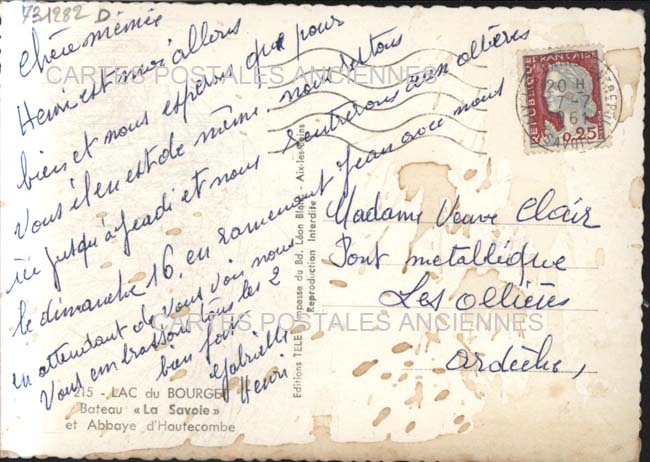 731282 D
Chère mémée
Henri et moi allons
bien et nous espérons que pour
vous il en est de même. nous restons
ici jusqu'à Jeudi et nous rentrerons aux ollières
le dimanche 16, en ramenant Jean avec nous
en attendant de vous voir nous
vous embrassons tous les 2
bien fort
Gabrielle
Henri
CARTES POSTALES ANCIENNES
CARTES POSTALES ANCIENNES
215 - LAC du BOURGET
Bateau « La Savoie »
et Abbaye d'Hautecombe
Editions TELE Impasse du Bd. Léon Blanc - Aix-les-Bains
Reproduction Interdite
REPUBLIQUE FRANÇAISE
0,25
20 H
7-7
1961
Madame Veuve Clair
Pont metallique
Les Ollières
ardèche,